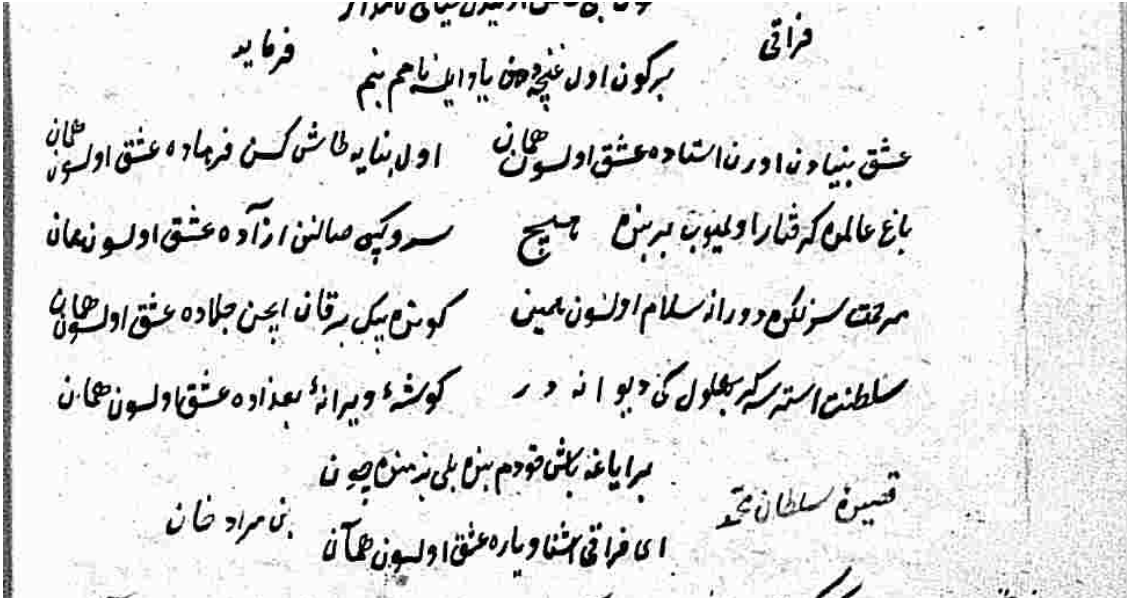 فراقی فرماید
بر کون اول غنچه دهن یا و ایله ناهم بنم
عشق بنیادن اورن استاده عشق اولسون همان اول بنایه طاش کسن فرهاده عشق اولسون همان
باغ عالمده کرفتار اولمیوب بر بنده هیچ سرو کبی صالنن ازآده عشق اولسون همان
مرحمت سز دورانه سلام اولسون کوزده بیک بر قان ایچن جلاده عشق اولسون همان
سلطنت استرسه کر بهلول کی دیوانه در کوشهٔ ویرانهٔ بغداده عشق اولسون همان
بر ایاغه باش قودم بزه بلی
ای فراقی اشنا و یاره عشق اولسون همان
قصیدهٔ سلطان محمد بن مراد خان